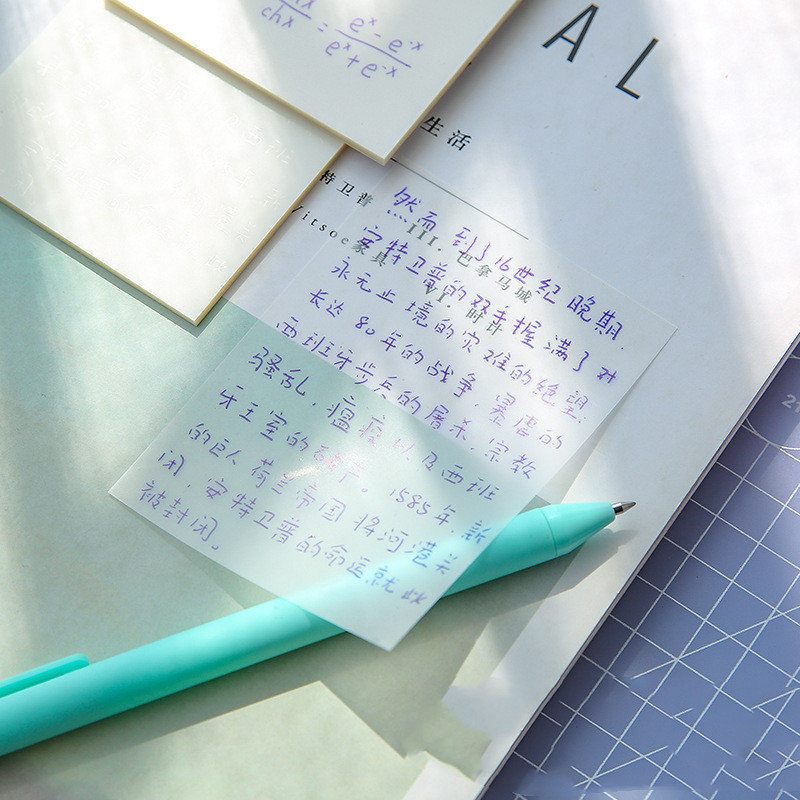 chx = e^x - e^-x
e^x + e^-x
A L
生活
特卫普
Vitsoe家具
III. 巴拿马城
VI. 时计
然而到了16世纪晚期.
安特卫普的双手握满了对
永无止境的灾难的绝望:
长达80年的战争,暴虐的
西班牙步兵的屠杀,宗教
骚乱,瘟疫以及西班
牙王室的破产。1585年,新
的巨人荷兰帝国将河港关
闭,安特卫普的命运就此
被封闭。
21